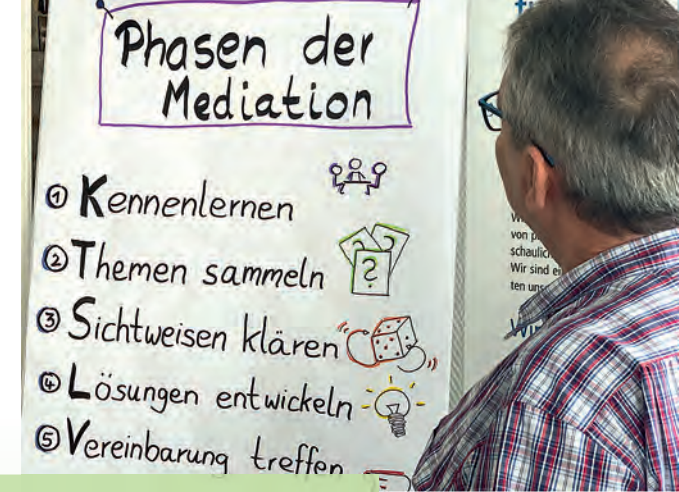 Phasen der
Mediation
① Kennenlernen
② Themen sammeln
? ? ?
③ Sichtweisen klären
④ Lösungen entwickeln
⑤ Vereinbarung treffen
von
schaulich
Wir sind
ten